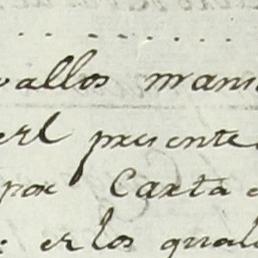 vallos mani
el presente
por Carta
: er los qual